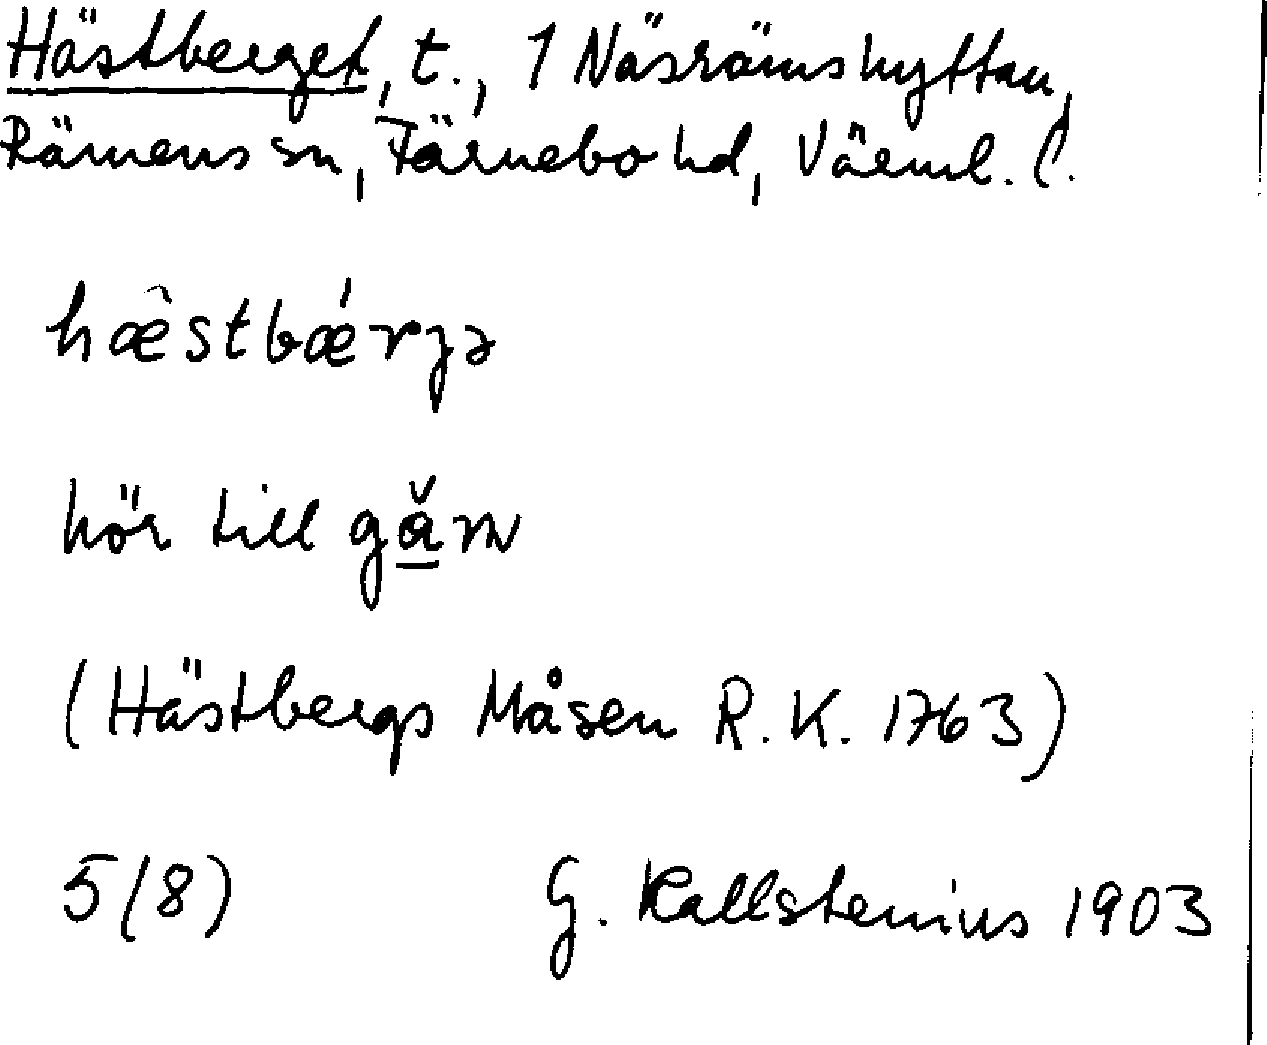 Hästberget, t., 1 Näsrämshyttan,
Rämens sn, Färnebo hd, Värml. l.
hæ̂stbǽrȷə
hör till gǎ̱m
(Hästbergs Måsen R. K. 1763)
5(8) G. Kallstenius 1903